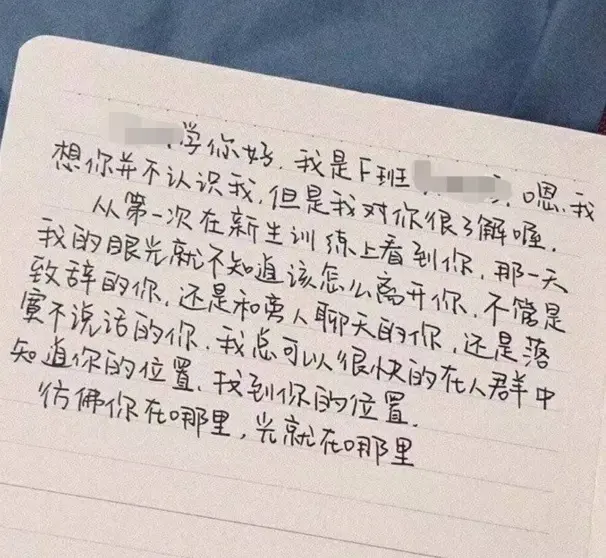 学你好，我是F班 嗯，我
想你并不认识我，但是我对你很了解喔，
从第一次在新生训练上看到你，那一天
我的眼光就不知道该怎么离开你，不管是
致辞的你，还是和旁人聊天的你，还是落
寞不说话的你，我总可以很快的在人群中
知道你的位置、找到你的位置，
彷佛你在哪里，光就在哪里